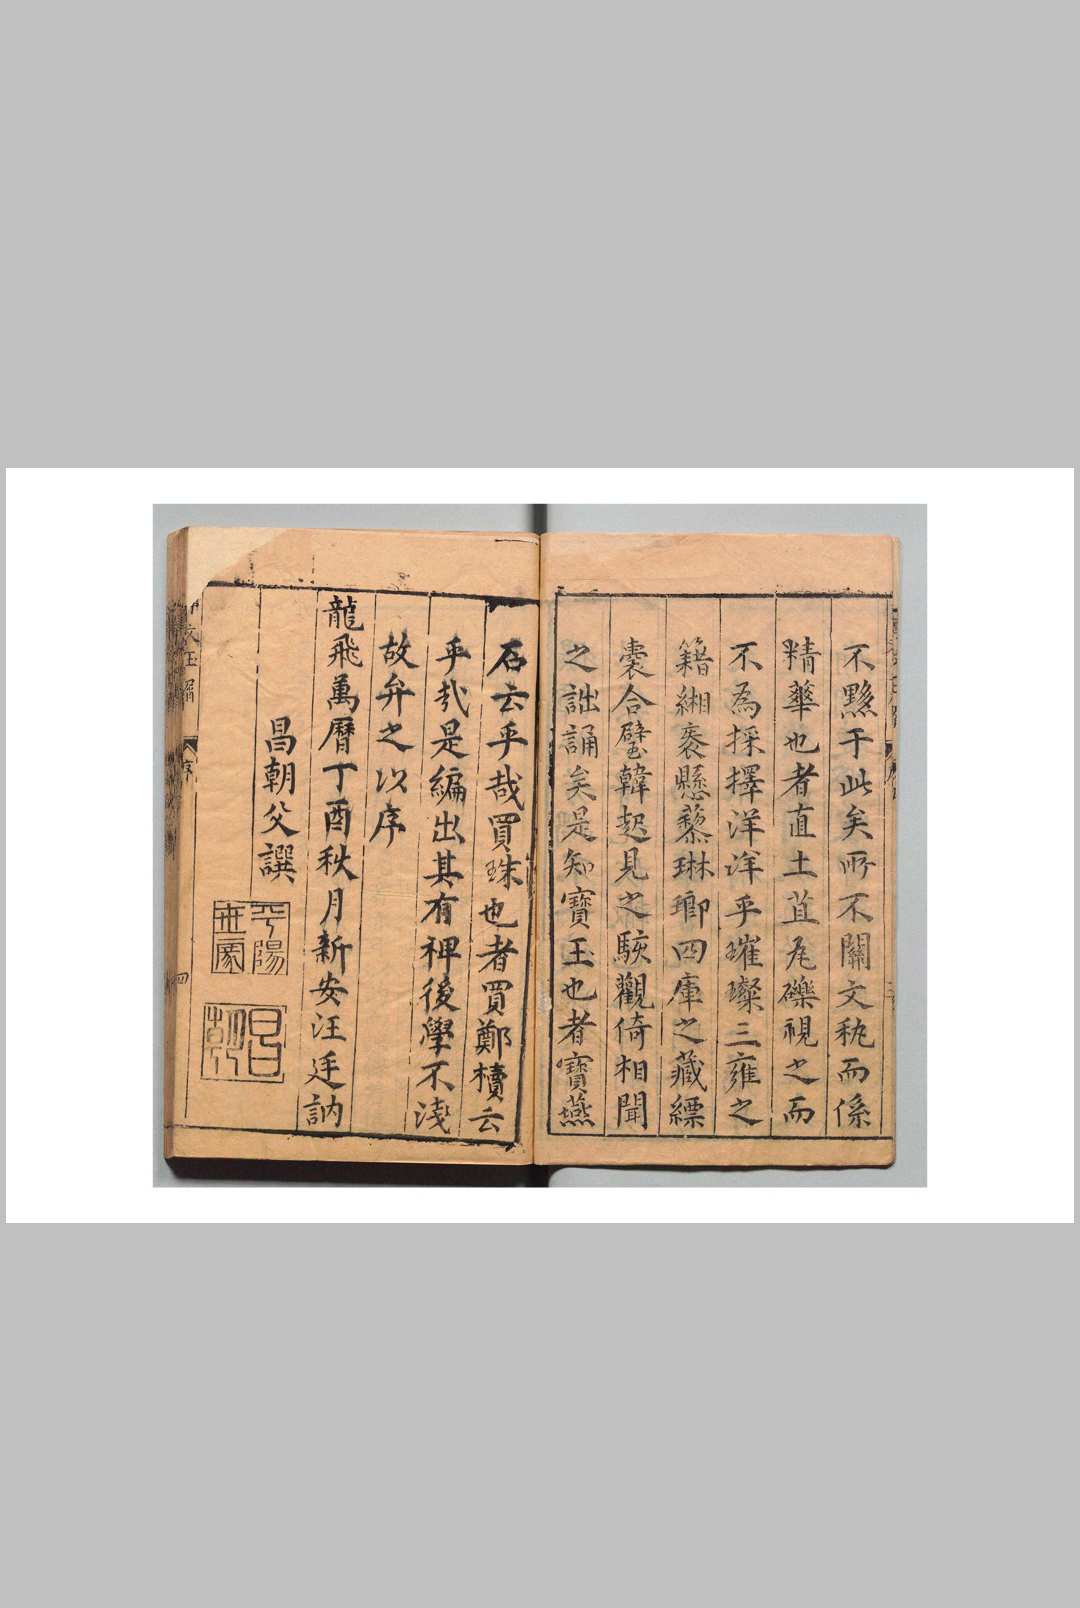 不黟于此矣所不關文秇而係
精華也者直土苴瓦礫視之而
不為採擇洋洋乎璀璨三雍之
籍緗袠懸藜琳瑯四庫之藏縹
囊合璧韓起見之駭觀倚相聞
之詘誦矣是知寶玉也者寶燕
石云乎哉買珠也者買鄭櫝云
乎哉是編出其有裨後學不淺
故弁之以序
龍飛萬曆丁酉秋月新安汪廷訥
昌朝父譔
平陽世家
昌朝
序
四